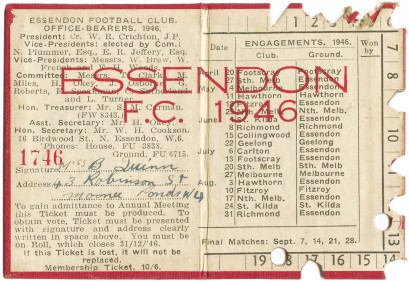 ESSENDON FOOTBALL CLUB.
OFFICE-BEARERS, 1946.
President: Cr. W. R. Crichton, J.P.
Vice-Presidents: elected by Com.:
N. Plummer, Esq., E. R. Jeffery, Esq.
Vice-Presidents: Messts. W. Brew, W.
French and
Committee: Messrs. T. Clark, M.
Miles, H. Okey, J. Osborne, G.
Roberts,
and L. Turner
Hon. Treasurer: Mr. S. M. Carman.
(FW 8343.)
Asst. Secretary: Mr. H.
Hon. Secretary: Mr. W. H. Cookson.
16 Birdwood St., N. Essendon, W.6.
Phones: House, FU 3838.
Ground, FU 6715.
1746
Signature B Quinn
Address 43 Robinson St
Moonee Ponds W4
To gain admittance to Annual Meeting
this Ticket must be produced. To
obtain vote, Ticket must be presented
with signature and address clearly
written in space above. You must be
on Roll, which closes 31/12/'46.
If this Ticket is lost, it will not be
replaced.
Membership Ticket. 10/6.
ESSENDON
F.C. 1946
ENGAGEMENTS, 1946.
Date Club. Ground. Won by
April 20 Footscray Footscray
27 Sth. Melb. Essendon
May 4 Melbourne
11 Hawthorn
Fitzroy Essendon
Nth. Melb.
June St. Kilda Essendon
8 Richmond Richmond
15 Collingwood Essendon
22 Geelong Geelong
29 Geelong Essendon
July 6 Carlton Essendon
13 Footscray Essendon
20 Sth. Melb. Sth. Melb.
27 Melbourne Essendon
Aug. 3 Hawthorn Essendon
10 Fitzroy Fitzroy
17 Nth. Melb. Essendon
24 St. Kilda St. Kilda
31 Richmond Essendon
Final Matches: Sept. 7, 14, 21, 28.
7
8
9
10
11
12
13
14
15
16
17
18
19